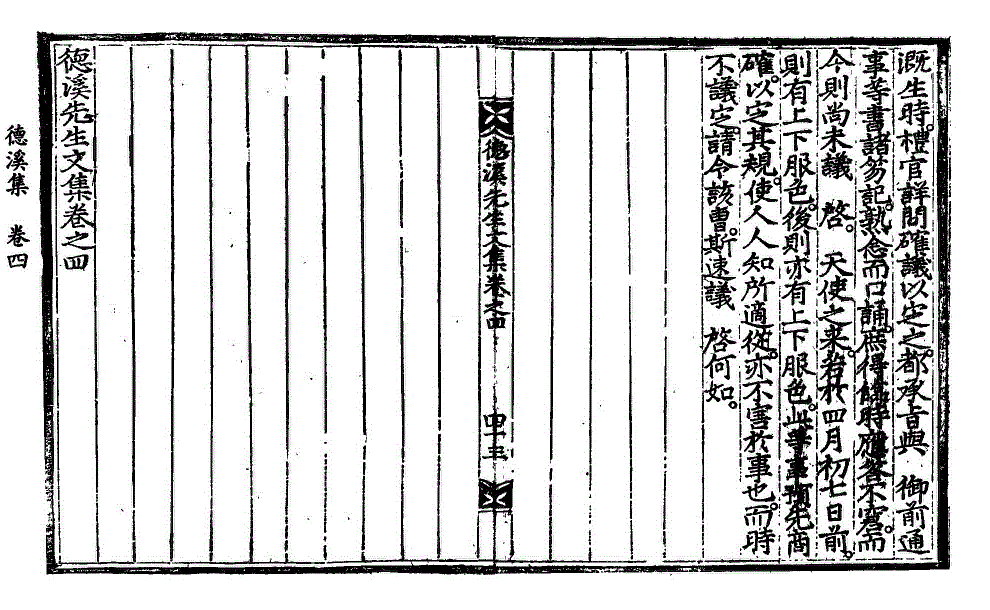 溉生時。禮官詳問確議以定之。都承旨與 御前通
事等書諸笏記。熟念而口誦。庶得臨時應答不窘。而
今則尚未議 啓。天使之來。若於四月初七日前。
則有上下服色。後則亦有上下服色。此等事預先商
確。以定其規。使人人知所適從。亦不害於事也。而時
不議定。請令該曹。斯速議 啓何如。
德溪先生文集卷之四
四十三
德溪先生文集卷之四
德溪集 卷四